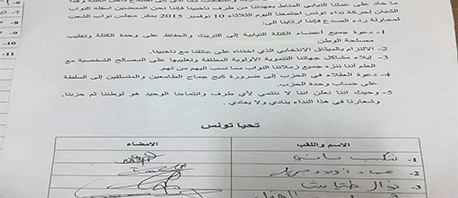 ما جاد على عملنا النيابي المناط بعهدتنا من طرف ناخبينا فإننا نحن الممضين أسفله النواب
الشبان لحركة نداء تونس اجتمعنا اليوم الثلاثاء 10 نوفمبر 2015 بمقر مجلس نواب الشعب
لمحاولة ردء الصدع فإننا ارتأينا الى
1- دعوة جميع أعضاء الكتلة النيابية إلى التريث والحفاظ على وحدة الكتلة وتغليب
مصلحة الوطن
2- الالتزام بالميثاق الانتخابي الذي أخذناه على عاتقنا مع ناخبينا.
3- إيلاء مشاكل جهاتنا التنموية الأولوية المطلقة وتغليبها على المصالح الشخصية مع
العلم أننا ننزه جميع زملائنا النواب مما نسب اليهم من تهم.
4- دعوة العقلاء في الحزب إلى ضرورة كبح جماح الطامعين والمتسلقين إلى السلطة
على حساب وحدة الحزب.
5- وحيث أننا نعلن أننا لا ننتمي لأي طرف وانتماءنا الوحيد هو لوطننا ثم حزبنا،
وشعارنا في هذا النداء ينادي ولا يعادي.
تحيا تونس
الاسم واللقب
الامضاء
1-
2-
3-
11-